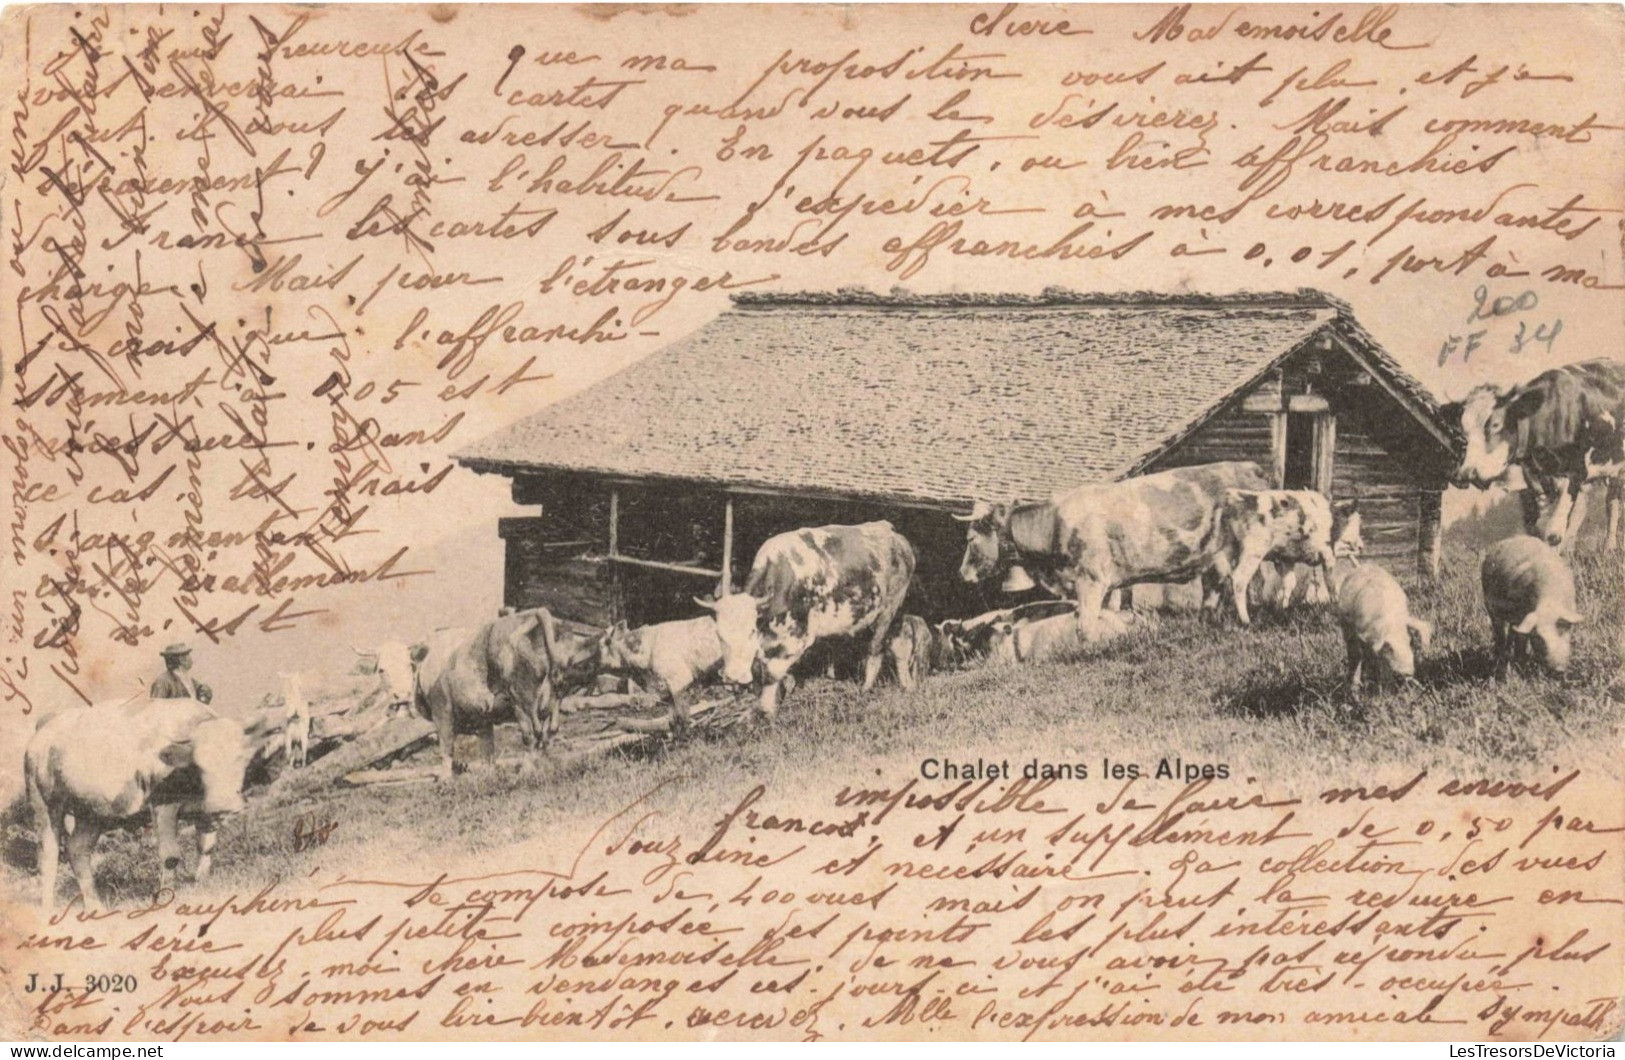 chère Mademoiselle
je suis heureuse que ma proposition vous ait plu, et je
vous enverrai des cartes quand vous le désirerez. Mais comment
faut-il vous les adresser. En paquets, ou bien affranchies
séparément? j'ai l'habitude d'expédier à mes correspondantes
de France les cartes sous bandes affranchies à 0,01, port à ma
charge. Mais, pour l'étranger
je crois que l'affranchi-
ssement, à 0,05 est
nécessaire. Dans
ce cas, les frais
s'augmentant
considérablement
il m'est
impossible de faire mes envois
francos, et un supplément de 0,50 par
douzaine est nécessaire. La collection des vues
du Dauphiné se compose de 400 vues mais on peut la réduire en
une série plus petite composée des points les plus intéressants.
Excusez-moi chère Mademoiselle de ne vous avoir pas répondu plus
tôt. Nous sommes en vendanges ces jours-ci et j'ai été très-occupée.
Dans l'espoir de vous lire bientôt, recevez, Mlle l'expression de mon amicale sympath.
200
FF 34
Chalet dans les Alpes
J.J. 3020
LesTresorsDeVictoria